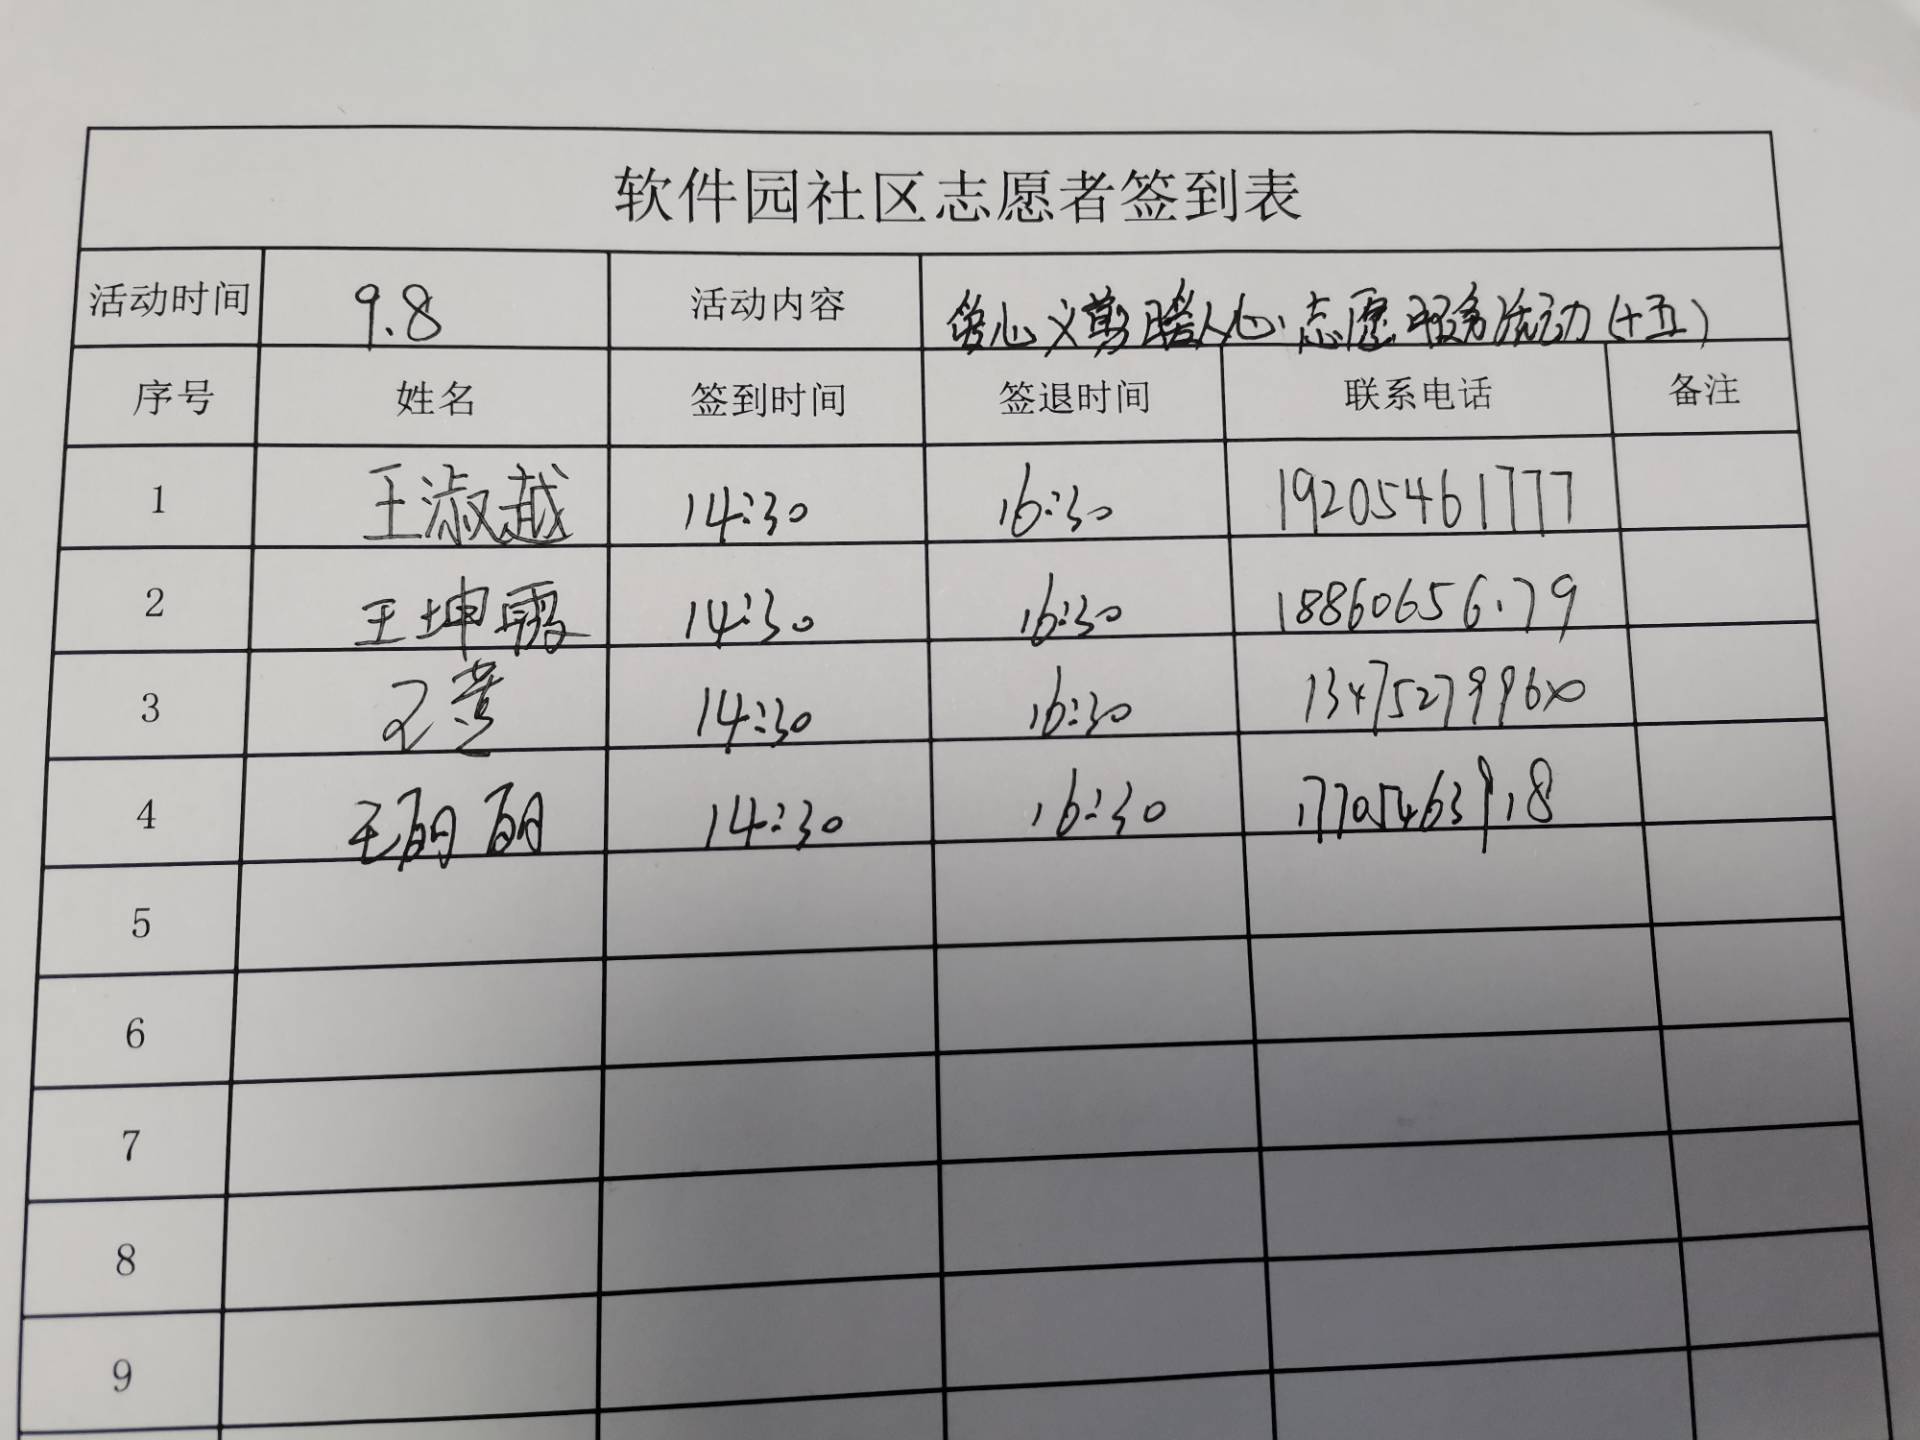 软件园社区志愿者签到表
活动时间 9.8 活动内容 爱心义剪暖人心志愿服务活动(十五)
序号 姓名 签到时间 签退时间 联系电话 备注
1 王淑越 14:30 16:30 19205461777
2 王坤霞 14:30 16:30 18860656179
3 14:30 16:30
4 王丽丽 14:30 16:30 17705463918
5
6
7
8
9